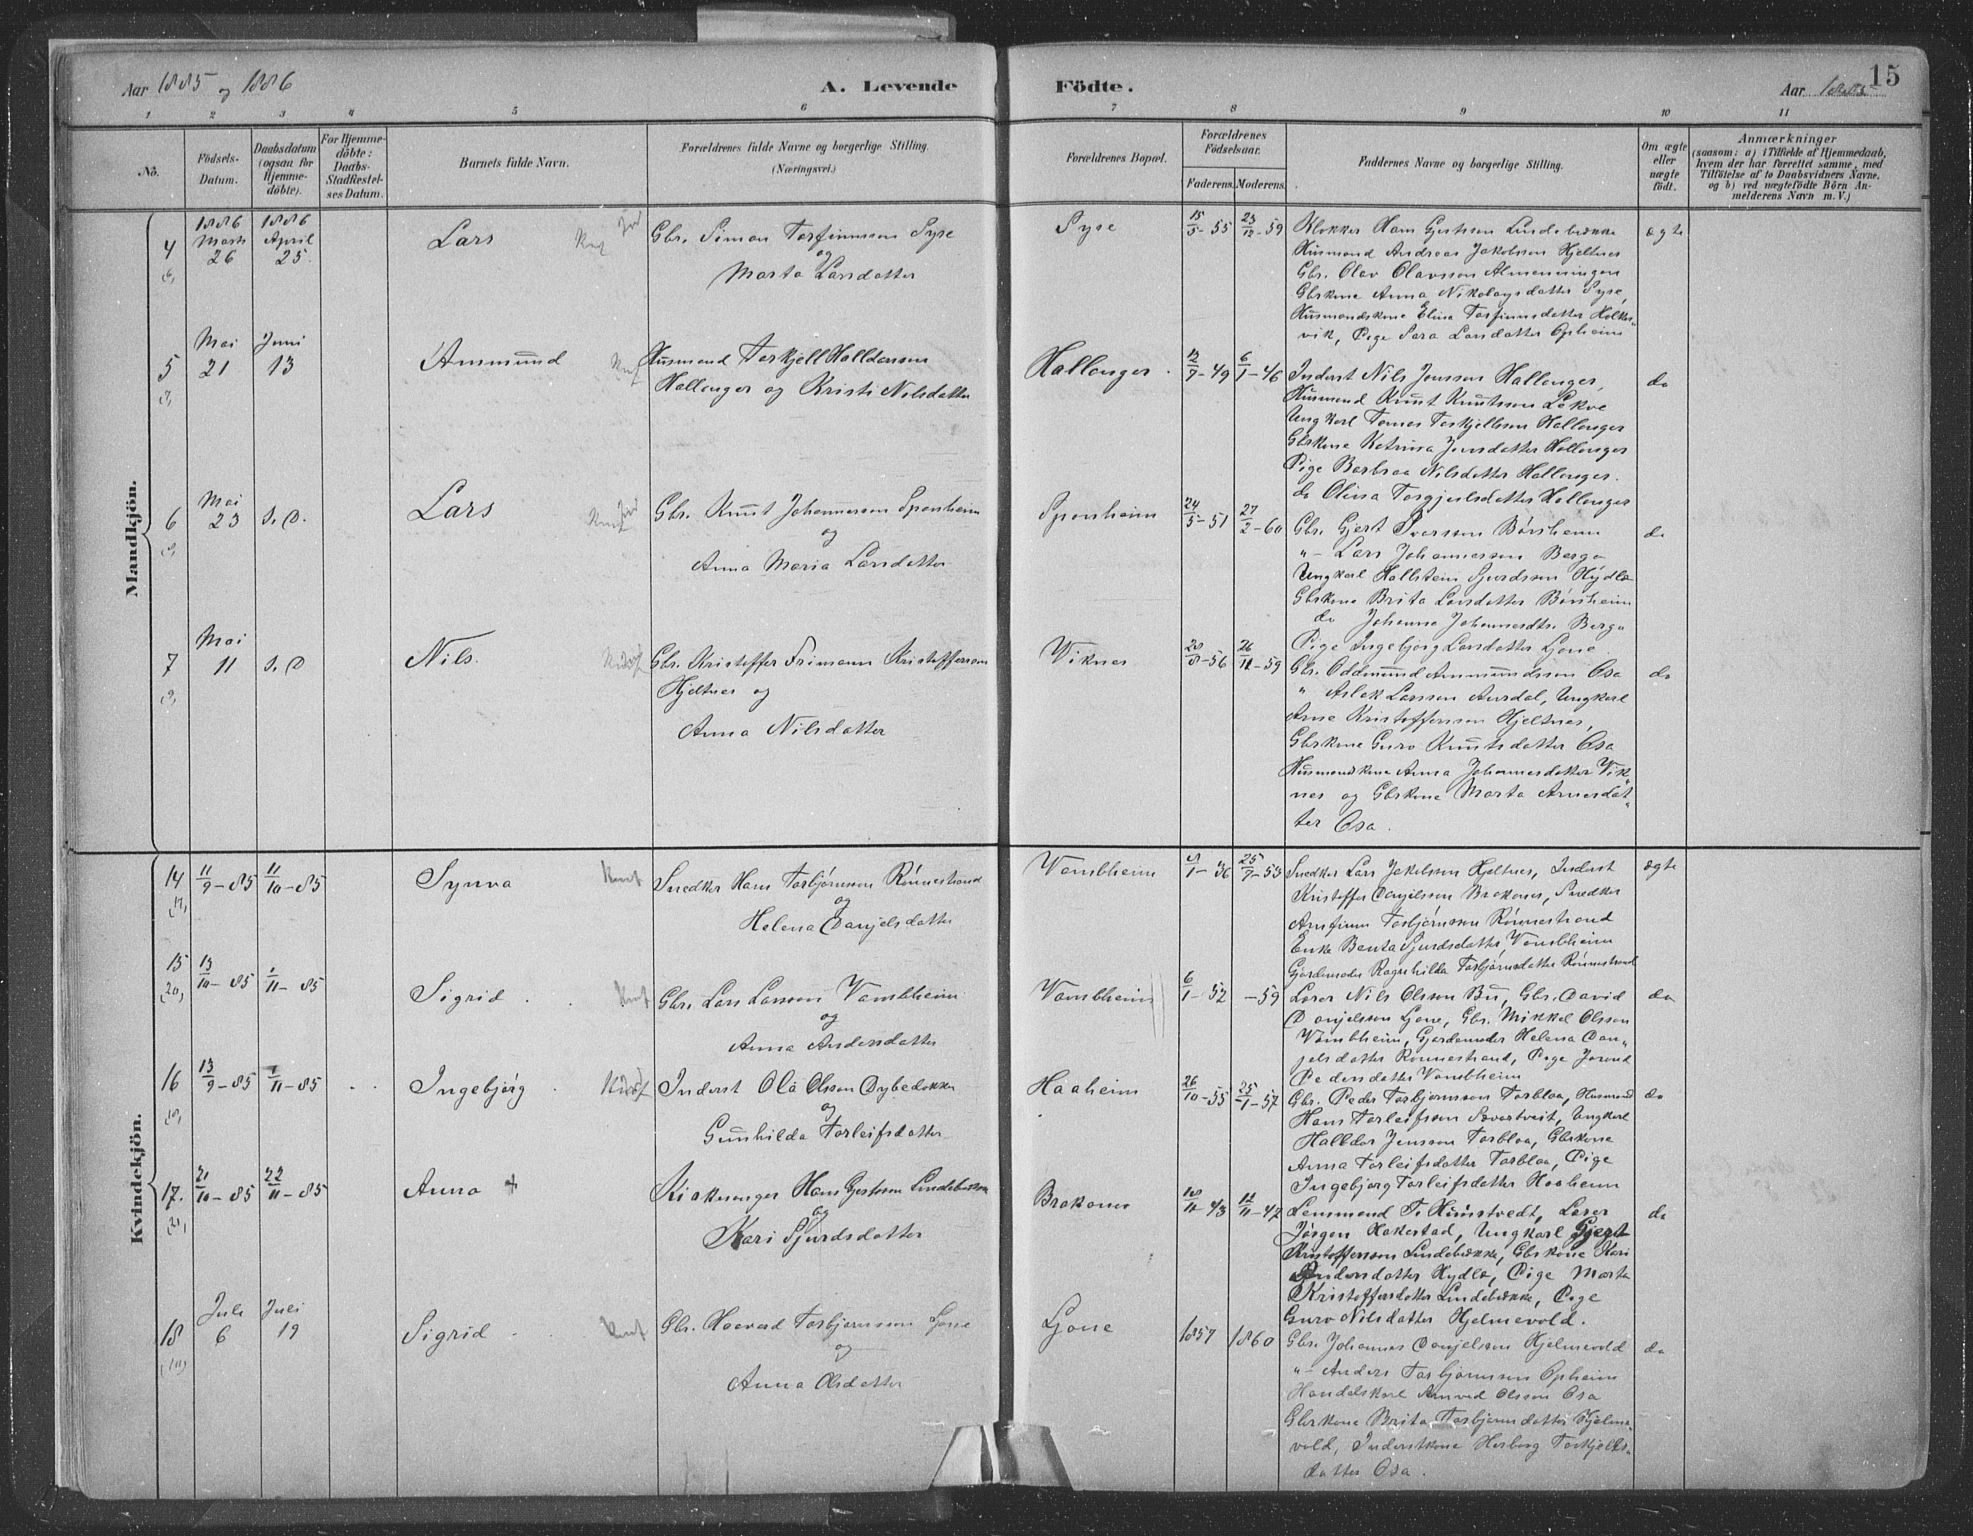 Aar 1885 og 1886
A. Levende
Födte.
Aar 1885
15
1 2 3 4 5 6 7 8 9 10 11
No.
Födsels-
Datum.
Daabsdatum
(ogsaa for
Hjemme-
döbte).
For Hjemme-
döbte:
Daabs-
Stadfæstel-
ses Datum.
Barnets fulde Navn.
Forældrenes fulde Navne og borgerlige Stilling.
(Næringsvei.)
Forældrenes Bopæl.
Forældrenes
Födselsaar.
Faderens.
Moderens.
Faddernes Navne og borgerlige Stilling.
Om ægte
eller
uægte
födt.
Anmærkninger
(saasom: a) i Tilfælde af Hjemmedaab,
hvem der har forrettet samme, med
Tilföielse af to Daabsvidners Navne,
og b) ved uægtefödte Börn An-
melderens Navn m. V.)
Mandkjön.
4
1886
Marts
26
1886
April
25.
Lars
Gbr. Simon Torfinnsson Syse
og
Marta Larsdatter
Syse
15/5-55
23/12-59
Klokker Hans Gjertsson Lindebrække
Husmand Andreas Jakobsson Hjeltnes
Gbr. Olav Olavsson Almenningen
Gbrkone Anna Nikolaysdatter Syse,
Husmandskone Elina Torfinnsdatter Holker-
vik, Pige Sara Larsdatter Opheim
ægte
5
Mai
21
Juni
13
Ammund
Husmand Torkjell Halldorsson
Hallanger og Kristi Nilsdatter
Hallanger.
12/7-49
6/1-46
Inderst Nils Jonsson Hallanger,
Husmand Knut Knutsson Lekve
Ungkarl Tomas Torkjellsson Hallanger
Gbrkone Katrina Jonsdatter Hallanger
Pige Barbraa Nilsdatter Hallanger.
do Olina Torgjerlsdatter Hallanger
do
6
Mai
23
s. D.
Lars
Gbr. Knut Johannesson Sponheim
og
Anna Maria Larsdatter
Sponheim
24/5-51
27/2-60
Gbr. Gjert Iversson Börsheim
"- Lars Johannesson Berge
Ungkarl Hallstein Sjurdsson Hydle
Gbrkone Brita Larsdatter Börsheim
do Johanna Johannesdtr Berge
Pige Ingebjörg Larsdatter Ljone.
do
7
Mai
11
s. D
Nils.
Gbr. Kristoffer Frimann Kristoffersson
Hjeltnes og
Anna Nilsdatter
Viknes
20/8-56
26/11-59
Gbr. Oddmund Ammundsson Osa
" Aslak Larsson Aurdal, Ungkarl
Arne Kristoffersson Hjeltnes,
Gbrkone Guro Knutsdatter Osa
Husmandskone Anna Johannesdatter Vik-
nes og Gbrkone Marta Arnesdat-
ter Osa.
do
Kvindekjön.
14
11/9-85
11/10-85
Synva
Snedker Hans Torbjörnsson Rönnestrand
og
Helena Danjelsdatter
Vambheim
8/1-36
25/7-53
Snedker Lars Jakobsson Hjeltnes, Inderst
Kristoffer Danjelsson Brakanes, Snedker
Arnfinn Torbjörnsson Rönnestrand
Enke Benta Sjurdsdatter Vambheim
Gjordemoder Ragnhilda Torbjörnsdatter Rönnestrand
ægte
15
(20)
13/10-85
1/11-85
Sigrid
Gbr. Lars Larsson Vambheim
og
Anna Andersdatter
Vambheim
6/1-52
-59
Lærer Nils Olsson Bu, Gbr. David
Danjelsson Ljone, Gbr. Mikkel Olsson
Vambheim, Gjordemoder Helena Dan-
jelsdatter Rönnestrand, Pige Jorond
Pedersdatter Vambheim
do
16
13/9-85
1/11-85
Ingebjörg
Inderst Ola Olsson Dybedokken
og
Gunnhilda Torleifsdatter
Haaheim
26/10-55
25/1-57
Gbr. Peder Torbjörnsson Torbloa, Husmand
Hans Torleifsson Svartveit, Ungkarl
Halldor Jonsson Torbloa, Gbrkone
Anna Torleifsdatter Torbloa, Pige
Ingebjörg Torleifsdatter Haaheim
do
17.
(21)
21/10-85
22/11-85
Anna +
Kirkesanger Hans Gjertsson Lindebrække
og
Kari Sjurdsdatter
Brakanes
18/11-43
12/11-47
Lensmand T. Hunstvedt, Lærer
Jörgen Hakestad, Ungkarl Gjert
Kristoffersson Lindebrække, Gbrkone Kari
Andersdatter Hydle, Pige Marta
Kristoffersdatter Lindebrække, Pige
Guro Nilsdatter Hjelmevold.
do
18
Juli
6
Juli
19
Sigrid
Gbr. Haavard Torbjörnsson Ljone
og
Anna Olsdatter
Ljone
1857
1860
Gbr. Johannes Danjelsson Hjelmevold
"- Anders Torbjörnsson Opheim
Handelskarl Amund Olsson Osa
Gbrkone Brita Torbjörnsdatter Hjelme-
vold, Inderstkone Herborg Torkjells-
datter Osa.
do